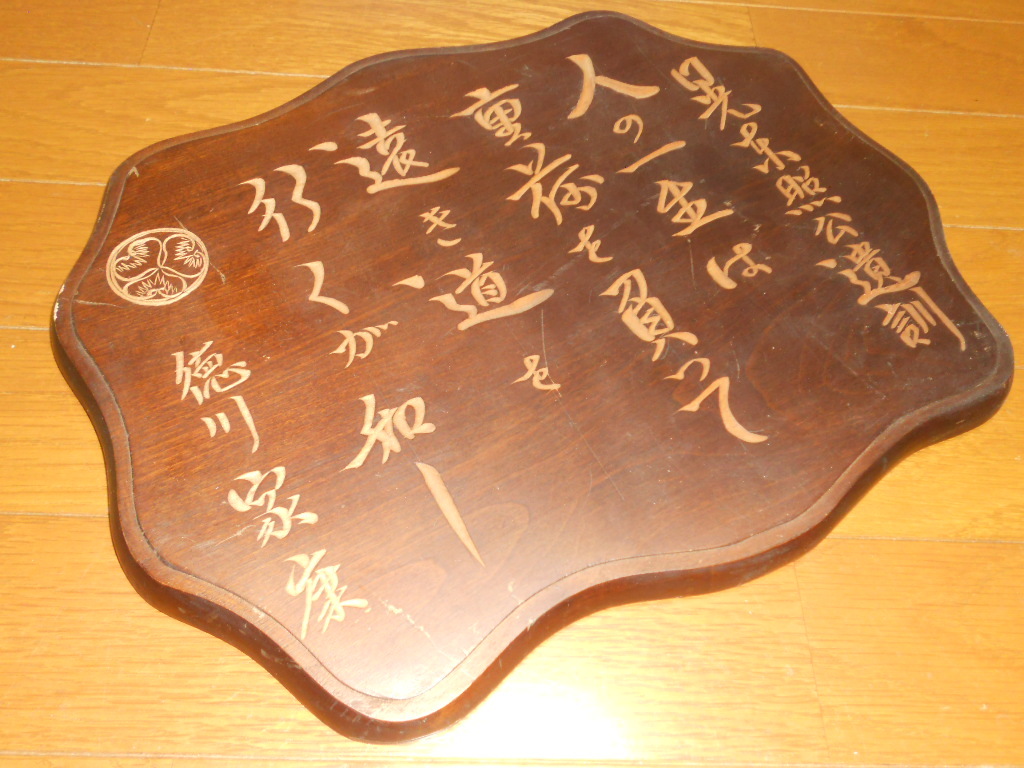 晃東照公遺訓
人の一生は
重荷を負うて
遠き道を
行くが如し
徳川家康